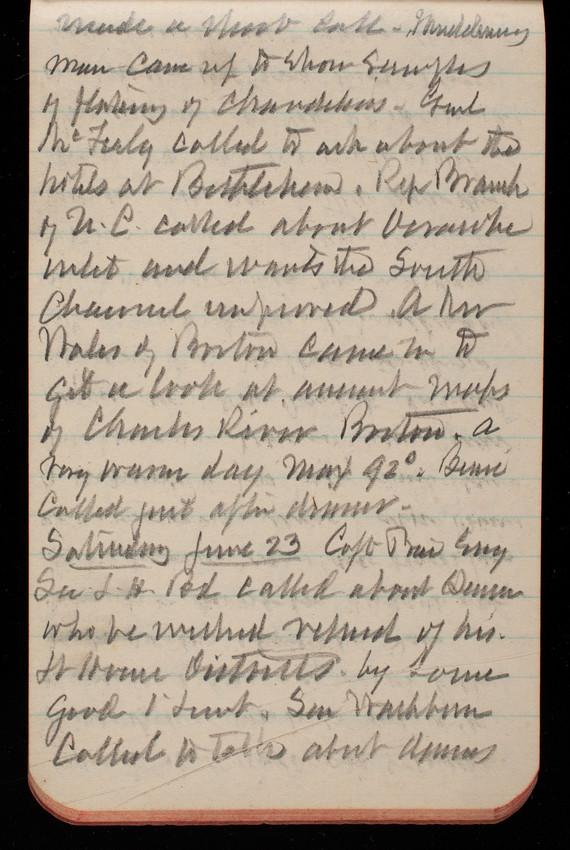 made a short call -
man came up to show samples
of plating of chandeliers - Genl
McFeely called to ask about the
hotels at Bethlehem. Rep Branch
of N.C. called about Ocracoke
inlet and wants the South
Channel improved. A Mr
Wales of Boston came in to
get a look at ancient maps
of Charles River Boston. A
very warm day Max 92°.
called just after dinner -
Saturday June 23 Capt
Sec L. H. Bd called about
who he wished relieved of his
Lt House Districts. by some
good . Gen
called to talk about